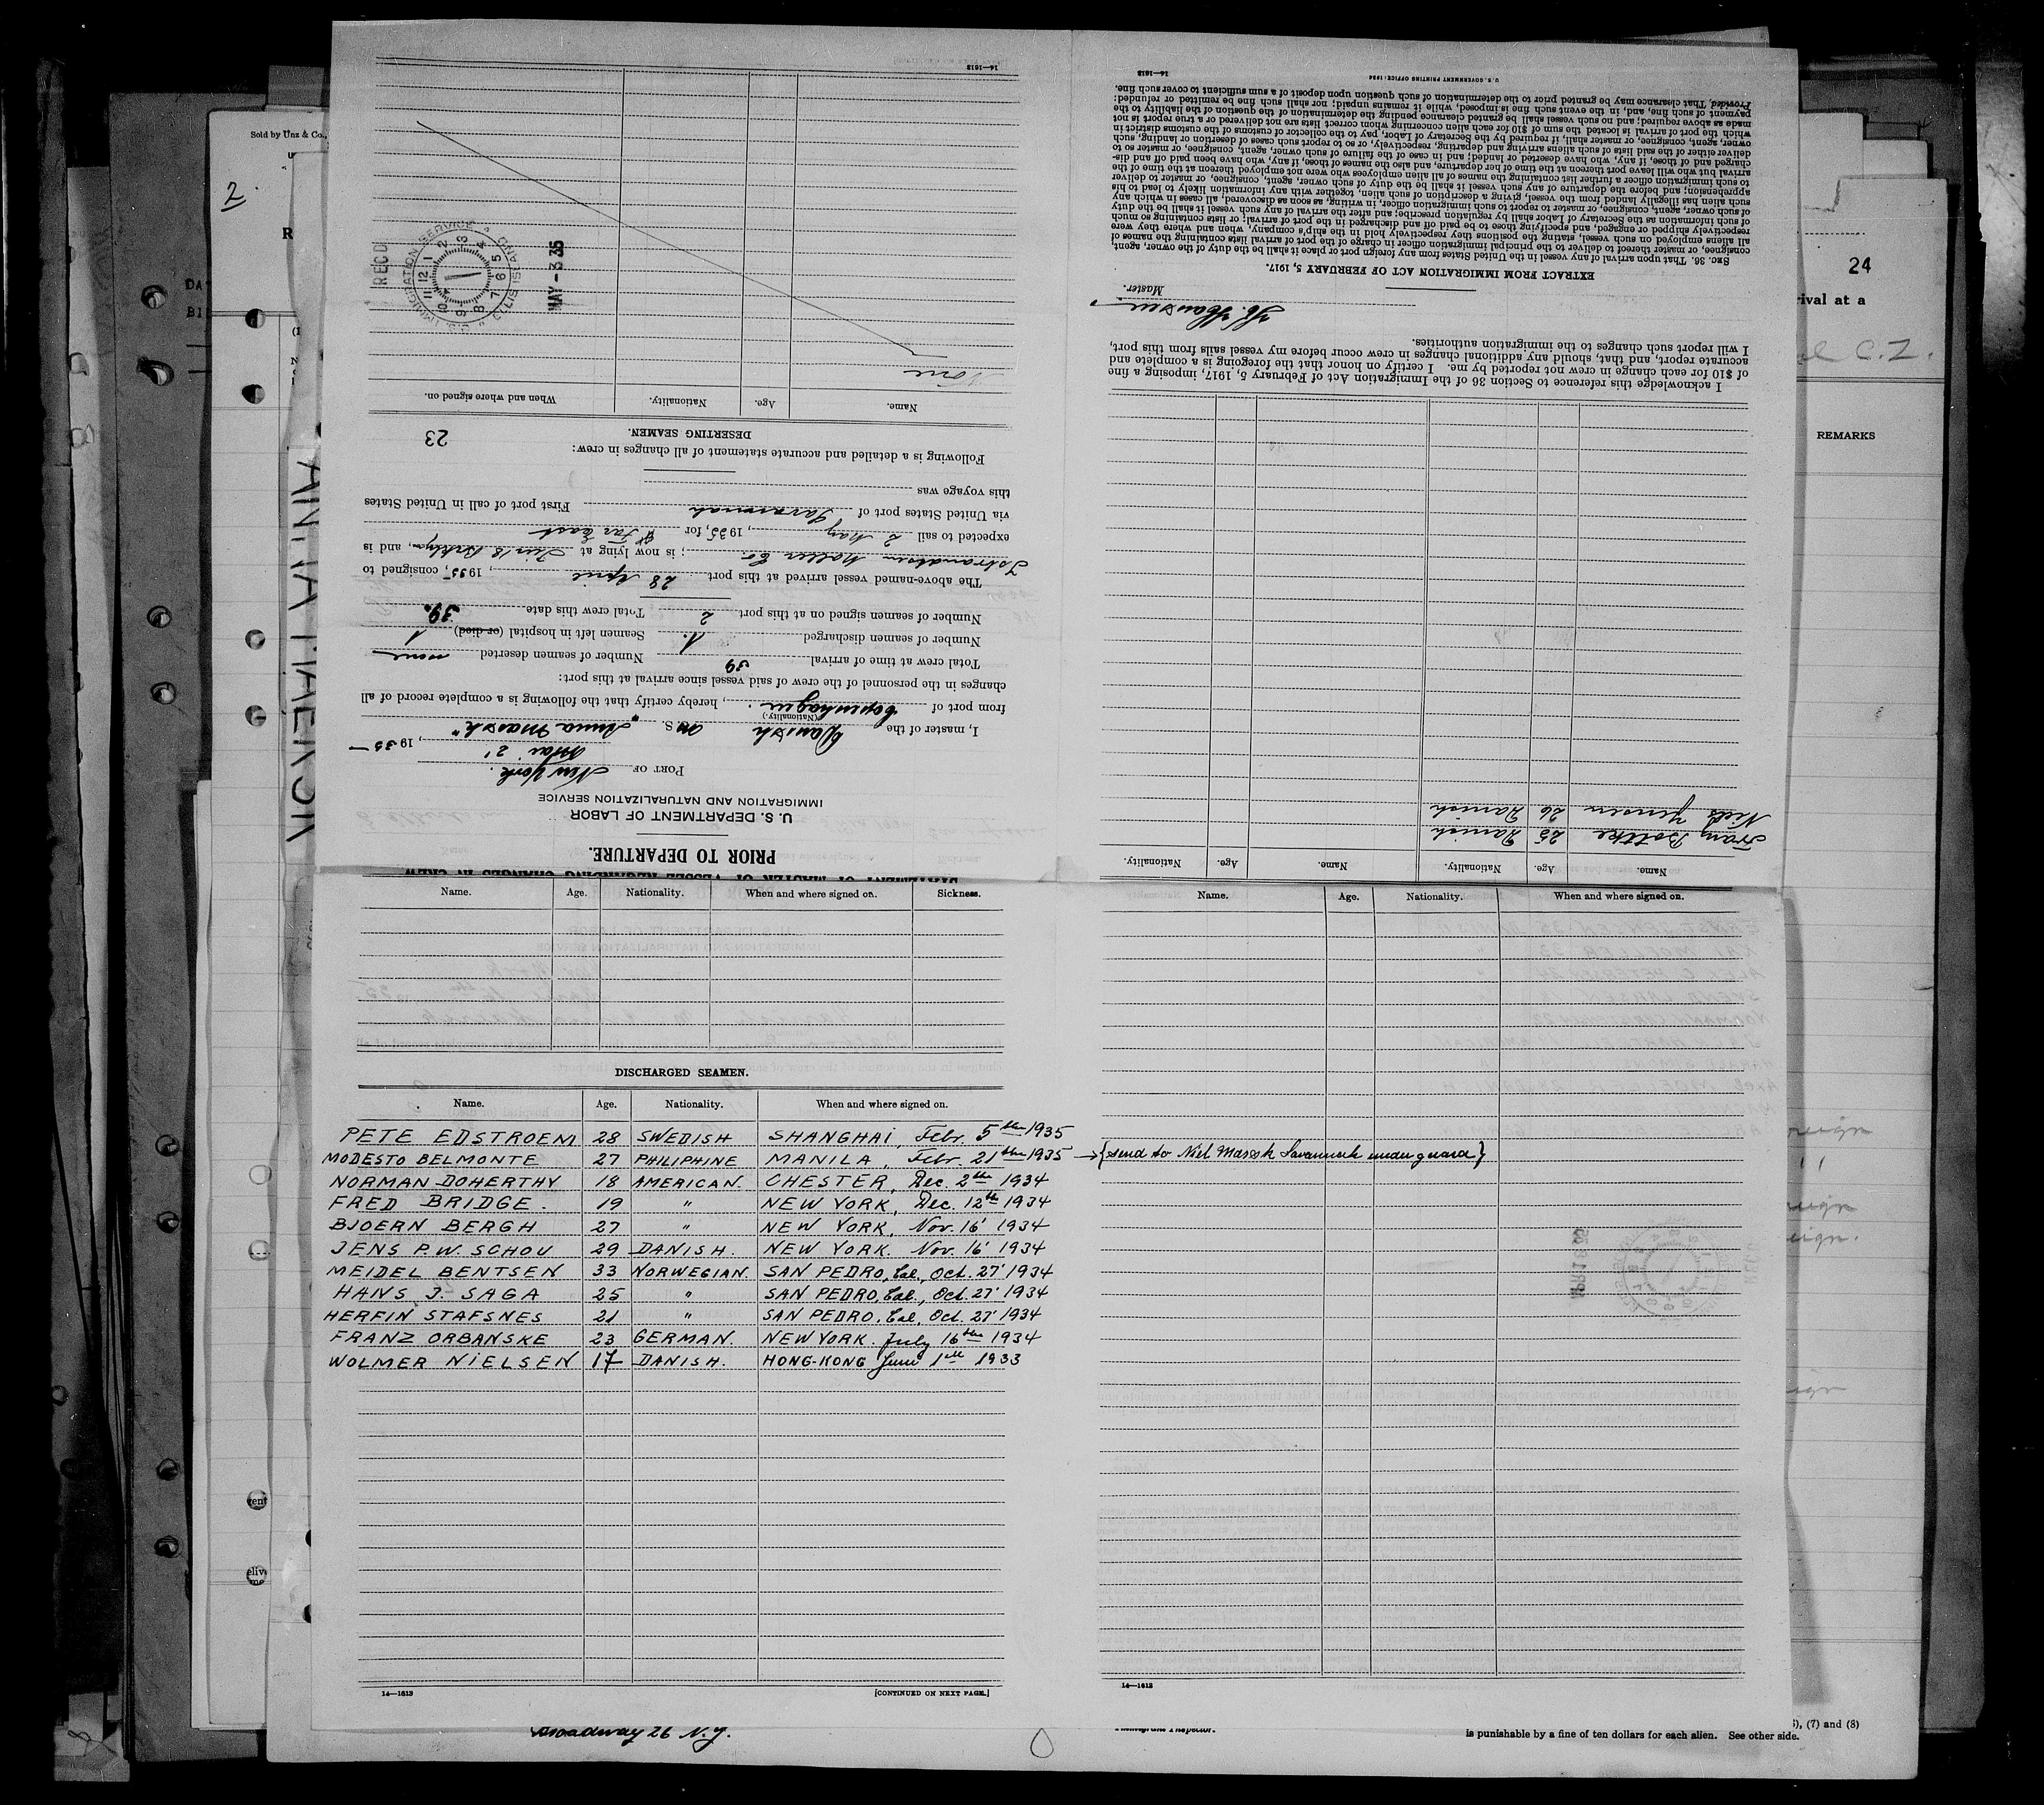 Sold by Unz & Co.,
2.
24
rival at a
REMARKS
STATEMENT OF MASTER OF VESSEL REGARDING CHANGES IN CREW
PRIOR TO DEPARTURE.
U. S. DEPARTMENT OF LABOR
IMMIGRATION AND NATURALIZATION SERVICE
PORT OF New York.
Mai 2', 1935
I, master of the Danish M S. "Anna Maersk"
(Nationality.)
from port of Copenhagen., hereby certify that the following is a complete record of all
changes in the personnel of the crew of said vessel since arrival at this port:
Total crew at time of arrival 39 Number of seamen deserted none
Number of seamen discharged 1. Seamen left in hospital (or died) 1
Number of seamen signed on at this port 2 Total crew this date 39.
The above-named vessel arrived at this port 28 April, 1935, consigned to
Isbrandtsen Moller Co; is now lying at Pier 18 Bklyn, and is
expected to sail 2 May, 1935, for Far East
via United States port of Savannah First port of call in United States
this voyage was
Following is a detailed and accurate statement of all changes in crew:
DESERTING SEAMEN.
23
Name. Age. Nationality. When and where signed on.
None
REC'D
U.S. IMMIGRATION SERVICE
MAY -3 35
14—1613
Name. Age. Nationality. Name. Age. Nationality.
Franz Bottke 25 Danish
Niels Jensen 26 Danish
I acknowledge this reference to Section 36 of the Immigration Act of February 5, 1917, imposing a fine
of $10 for each change in crew not reported by me. I certify on honor that the foregoing is a complete and
accurate report, and that, should any additional changes in crew occur before my vessel sails from this port,
I will report such changes to the immigration authorities.
Hansen
Master.
EXTRACT FROM IMMIGRATION ACT OF FEBRUARY 5, 1917.
SEC. 36. That upon arrival of any vessel in the United States from any foreign port or place it shall be the duty of the owner, agent,
consignee, or master thereof to deliver to the principal immigration officer in charge of the port of arrival lists containing the names of
all aliens employed on such vessel, stating the positions they respectively hold in the ship's company, when and where they were
respectively shipped or engaged, and specifying those to be paid off and discharged in the port of arrival; or lists containing so much
of such information as the Secretary of Labor shall by regulation prescribe; and after the arrival of any such vessel it shall be the duty
of such owner, agent, consignee, or master to report to such immigration officer, in writing, as soon as discovered, all cases in which any
such alien has illegally landed from the vessel, giving a description of such alien, together with any information likely to lead to his
apprehension; and before the departure of any such vessel it shall be the duty of such owner, agent, consignee, or master to deliver
to such immigration officer a further list containing the names of all alien employees who were not employed thereon at the time of the
arrival but who will leave port thereon at the time of her departure, and also the names of those, if any, who have been paid off and dis-
charged and of those, if any, who have deserted or landed; and in case of the failure of such owner, agent, consignee, or master to
deliver either of the said lists of such aliens arriving and departing, respectively, or so to report such cases of desertion or landing, such
owner, agent, consignee, or master shall, if required by the Secretary of Labor, pay to the collector of customs of the customs district in
which the port of arrival is located the sum of $10 for each alien concerning whom correct lists are not delivered or a true report is not
made as above required; and no such vessel shall be granted clearance pending the determination of the question of the liability to the
payment of such fine, and, in the event such fine is imposed, while it remains unpaid; nor shall such fine be remitted or refunded:
Provided, That clearance may be granted prior to the determination of such question upon deposit of a sum sufficient to cover such fine.
U. S. GOVERNMENT PRINTING OFFICE: 1934
14—1613
Name. Age. Nationality. When and where signed on. Sickness.
DISCHARGED SEAMEN.
Name. Age. Nationality. When and where signed on.
PETE EDSTROEM 28 SWEDISH SHANGHAI, Febr. 5th 1935
MODESTO BELMONTE 27 PHILIPHINE MANILA, Febr. 21th 1935 → {send to Niel Maersk Savannah under guard}
NORMAN DOHERTHY 18 AMERICAN. CHESTER, Dec. 2th 1934
FRED BRIDGE. 19 " NEW YORK, Dec. 12th 1934
BJOERN BERGH 27 " NEW YORK, Nov. 16' 1934
JENS P.W. SCHOU 29 DANISH. NEW YORK. Nov. 16' 1934
MEIDEL BENTSEN 33 NORWEGIAN. SAN PEDRO, Cal., Oct. 27' 1934
HANS J. SAGA 25 " SAN PEDRO, Cal., Oct. 27' 1934
HERFIN STAFSNES 21 " SAN PEDRO, Cal, Oct. 27' 1934
FRANZ ORBANSKE 23 GERMAN. NEW YORK. July 16th 1934
WOLMER NIELSEN 17 DANISH. HONG-KONG June 1th 1933
14—1613 [CONTINUED ON NEXT PAGE.]
Name. Age. Nationality. When and where signed on.
14—1613
Broadway 26 N.Y.
Immigrant Inspector.
), (7) and (8)
is punishable by a fine of ten dollars for each alien. See other side.